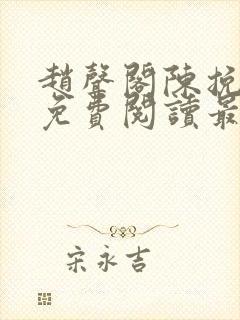 趙聲閣陳挽
免費閱讀最
宋永吉